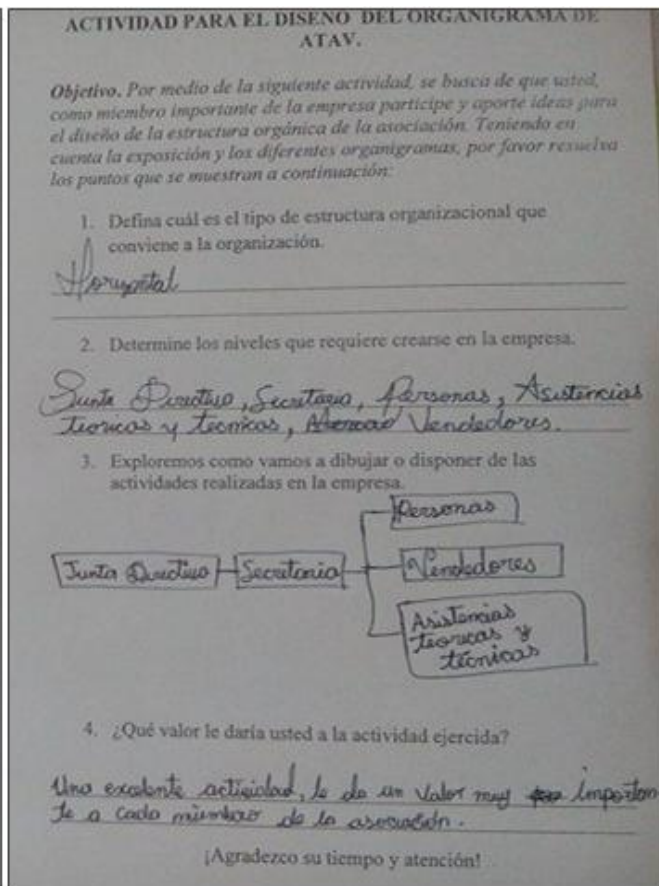 ACTIVIDAD PARA EL DISEÑO DEL ORGANIGRAMA DE
ATAV.
Objetivo. Por medio de la siguiente actividad, se busca de que usted,
como miembro importante de la empresa participe y aporte ideas para
el diseño de la estructura orgánica de la asociación. Teniendo en
cuenta la exposición y los diferentes organigramas, por favor resuelva
los puntos que se muestran a continuación:
1. Defina cuál es el tipo de estructura organizacional que
conviene a la organización.
Horizontal
2. Determine los niveles que requiere crearse en la empresa.
Junta Directiva, Secretaria, Personas, Asistencias
teoricas y tecnicas, Vendedores.
3. Exploremos como vamos a dibujar o disponer de las
actividades realizadas en la empresa.
Personas
Junta Directiva
Secretaria
Vendedores
Asistencias
teoricas y
técnicas
4. ¿Qué valor le daría usted a la actividad ejercida?
Una excelente actividad, le da un valor muy importan
te a cada miembro de la asociación.
¡Agradezco su tiempo y atención!